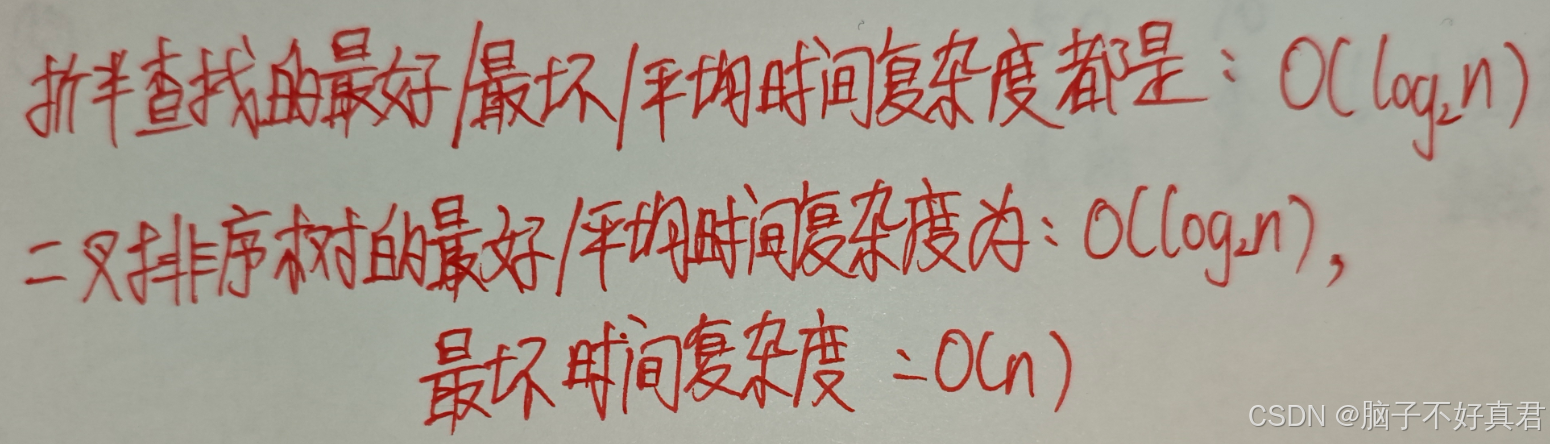 折半查找的最好/最坏/平均时间复杂度都是：O(log₂n)
二叉排序树的最好/平均时间复杂度为：O(log₂n)，
最坏时间复杂度：O(n)
CSDN @脑子不好真君